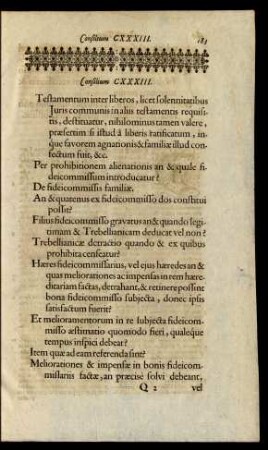 Consilium CXXXIII. 183
Consilium CXXXIII.
Testamentum inter liberos, licet solennitatibus
Juris communis in aliis testamentis requisi-
tis, destituatur, nihilominus tamen valere,
præsertim si istud à liberis ratificatum, in-
que favorem agnationis & familiæ illud con-
fectum fuit, &c.
Per prohibitionem alienationis an & quale fi-
deicommissum introducatur?
De fideicommissis familiæ.
An & quatenus ex fideicommisso dos constitui
possit?
Filius fideicommisso gravatus an & quando legi-
timam & Trebellianicam deducat vel non?
Trebellianicæ detractio quando & ex quibus
prohibita censeatur?
Hæres fideicommissarius, vel ejus hæredes an &
quas meliorationes ac impensas in rem hære-
ditariam factas, detrahant, & retinere possint
bona fideicommisso subjecta, donec ipsis
satisfactum fuerit?
Et melioramentorum in re subjecta fideicom-
misso æstimatio quomodo fieri, qualeque
tempus inspici debeat?
Item quæ ad eam referenda sint?
Meliorationes & impensæ in bonis fideicom-
missariis factæ, an præcisè solvi debeant,
Q 2 vel